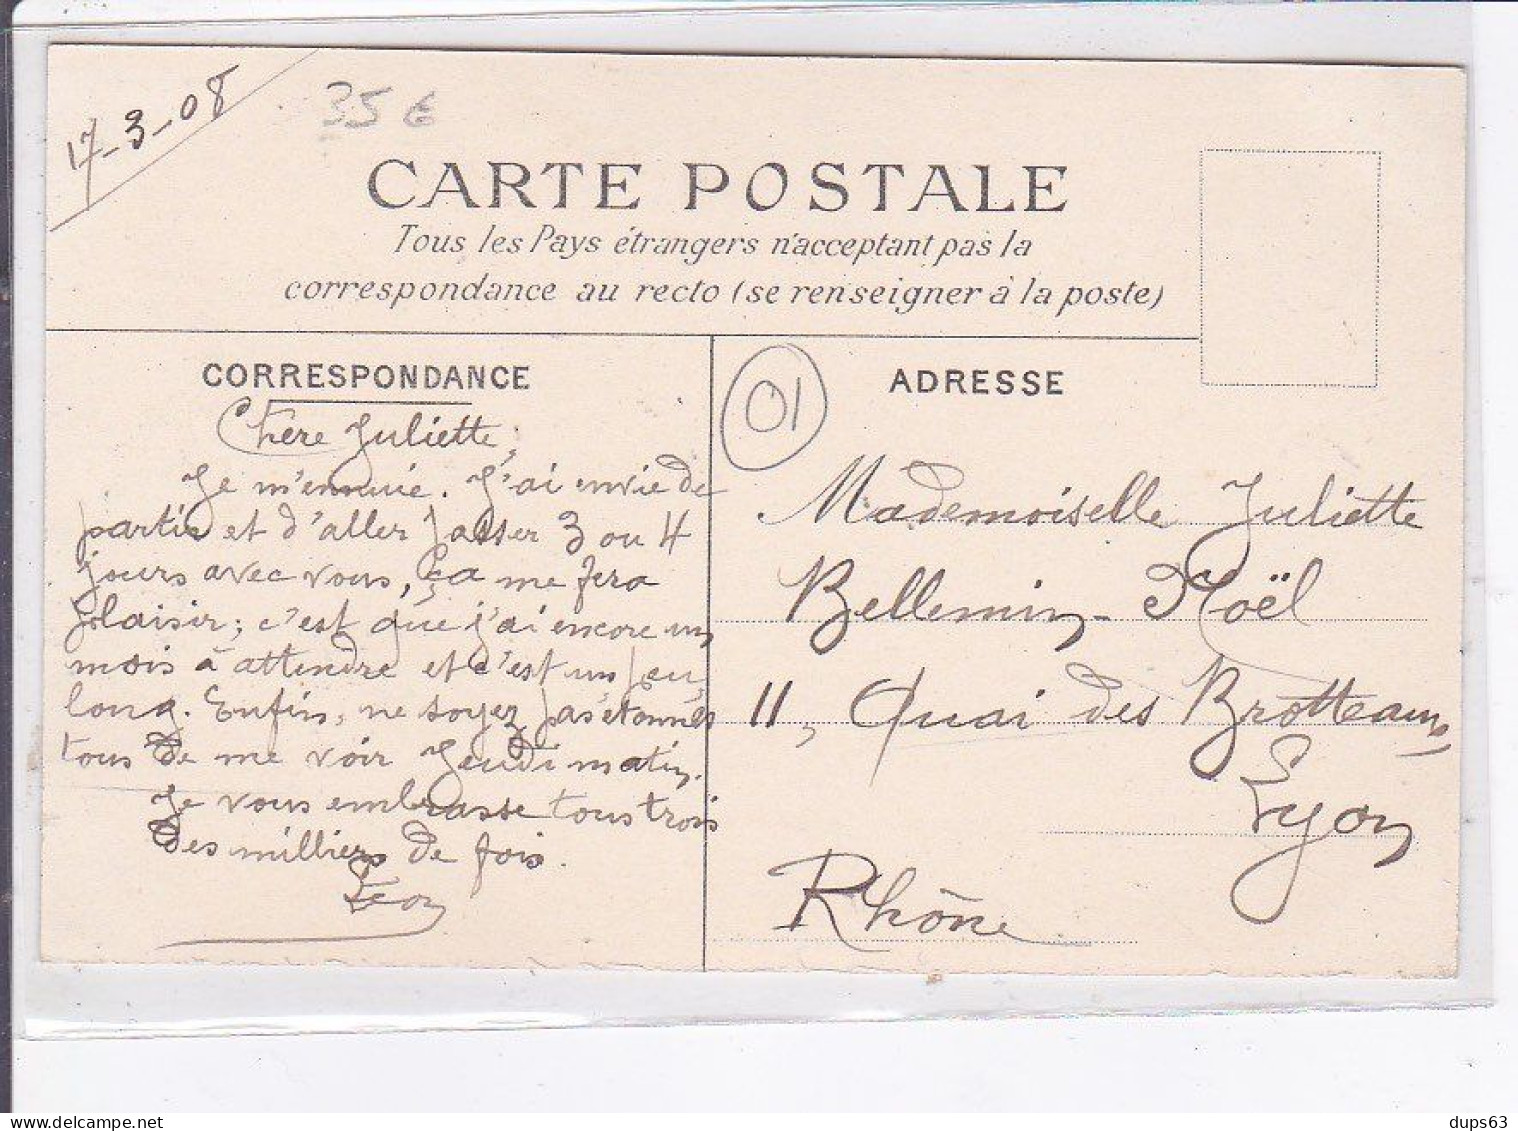 17-3-08
35 €
CARTE POSTALE
Tous les Pays étrangers n'acceptant pas la
correspondance au recto (se renseigner à la poste)
CORRESPONDANCE
Chère Juliette,
Je m'ennuie. J'ai envie de
partir et d'aller passer 3 ou 4
jours avec vous, ça me fera
plaisir; c'est que j'ai encore un
mois à attendre et c'est un peu
long. Enfin, ne soyez pas étonnés
tous de me voir Jeudi matin.
Je vous embrasse tous trois
des milliers de fois.
Léon
01
ADRESSE
Mademoiselle Juliette
Bellemin-Noël
11, Quai des Brotteaux,
Lyon
Rhône
delcampe.net
dups63